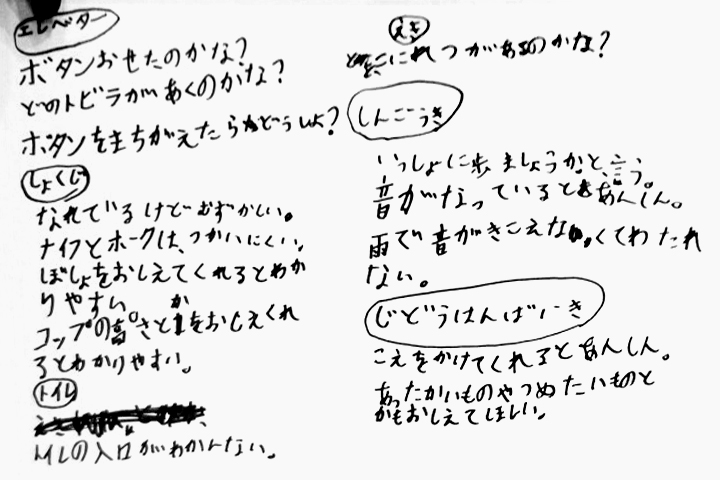 エレベター
ボタンおせたのかな?
どのトビラがあくのかな?
ボタンをまちがえたらどうしよ?
しょくじ
なれているけどむずかしい。
ナイフとホークは、つかいにくい。
ばしょをおしえてくれるとわか
りやすい
コップの高さとかをおしえてくれ
るとわかりやすい。
トイレ
トイレの入口がわかんない。
えき
どこにれつがあるのかな?
しんごうき
いっしょに歩ましょうか?と、言う。
音がなっているとあんしん。
雨で音がきこえなくてわたれ
ない。
じどうはんばいき
こえをかけてくれるとあんしん。
あったかいものやつめたいものと
かもおしえてほしい。